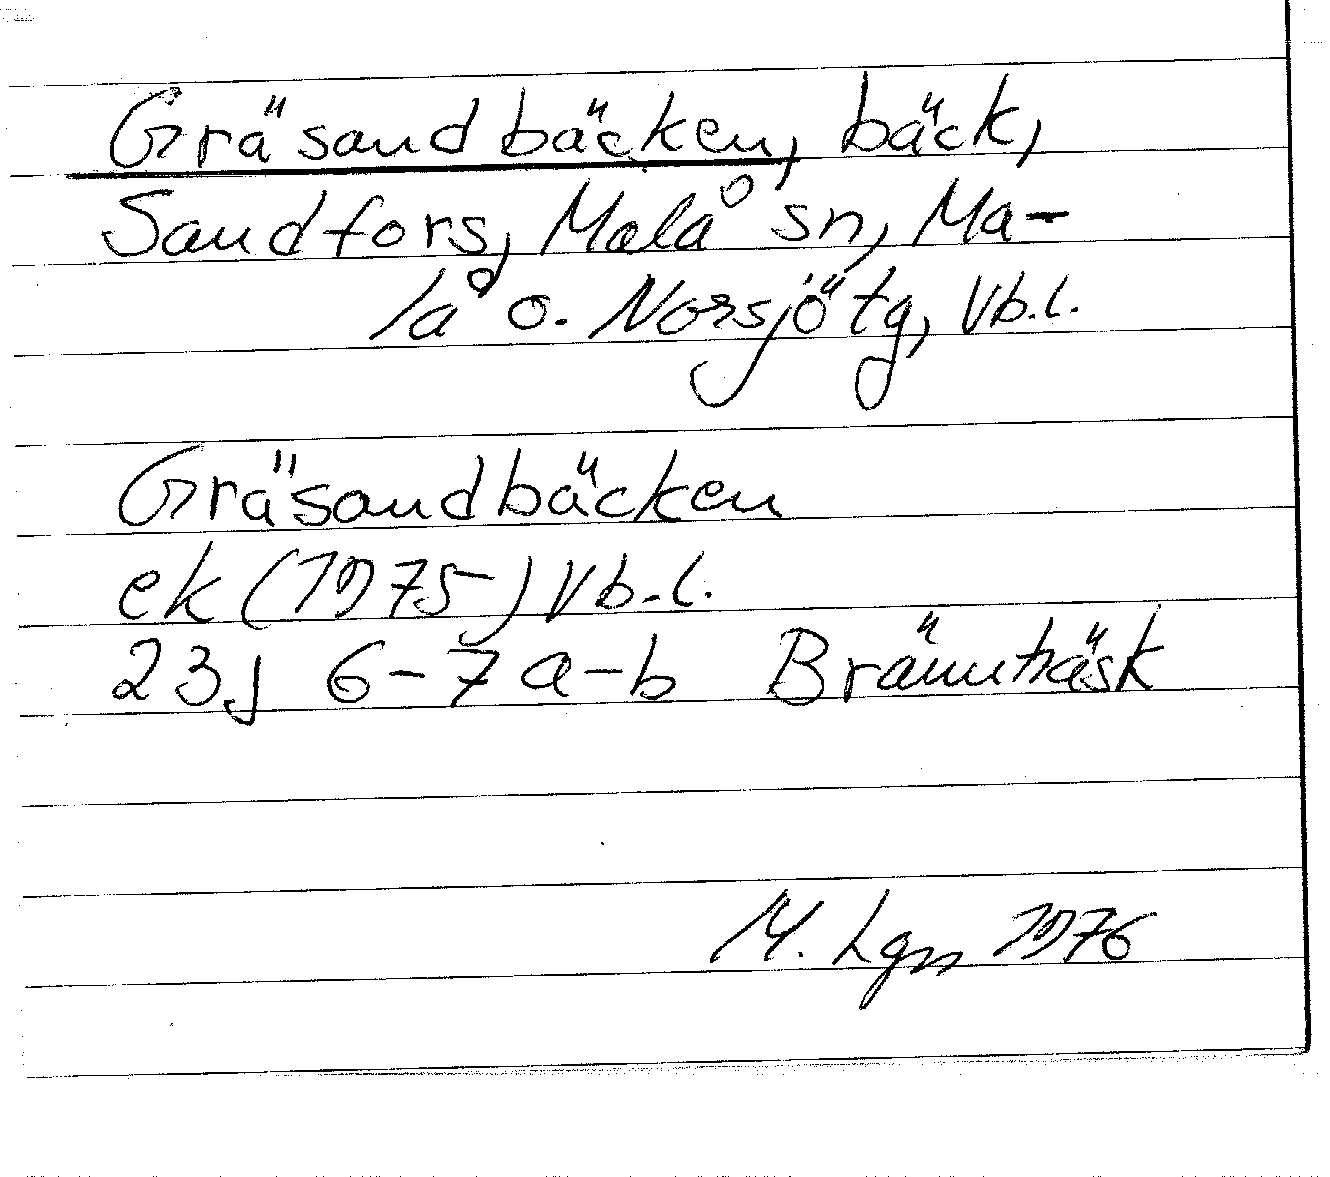 Gräsandbäcken, bäck,
Sandfors, Malå sn, Ma-
lå o. Norsjö tg, Vb.l.
Gräsandbäcken
ek (1975) Vb.l.
23J 6-7 a-b Brännträsk
M. Lgn 1976